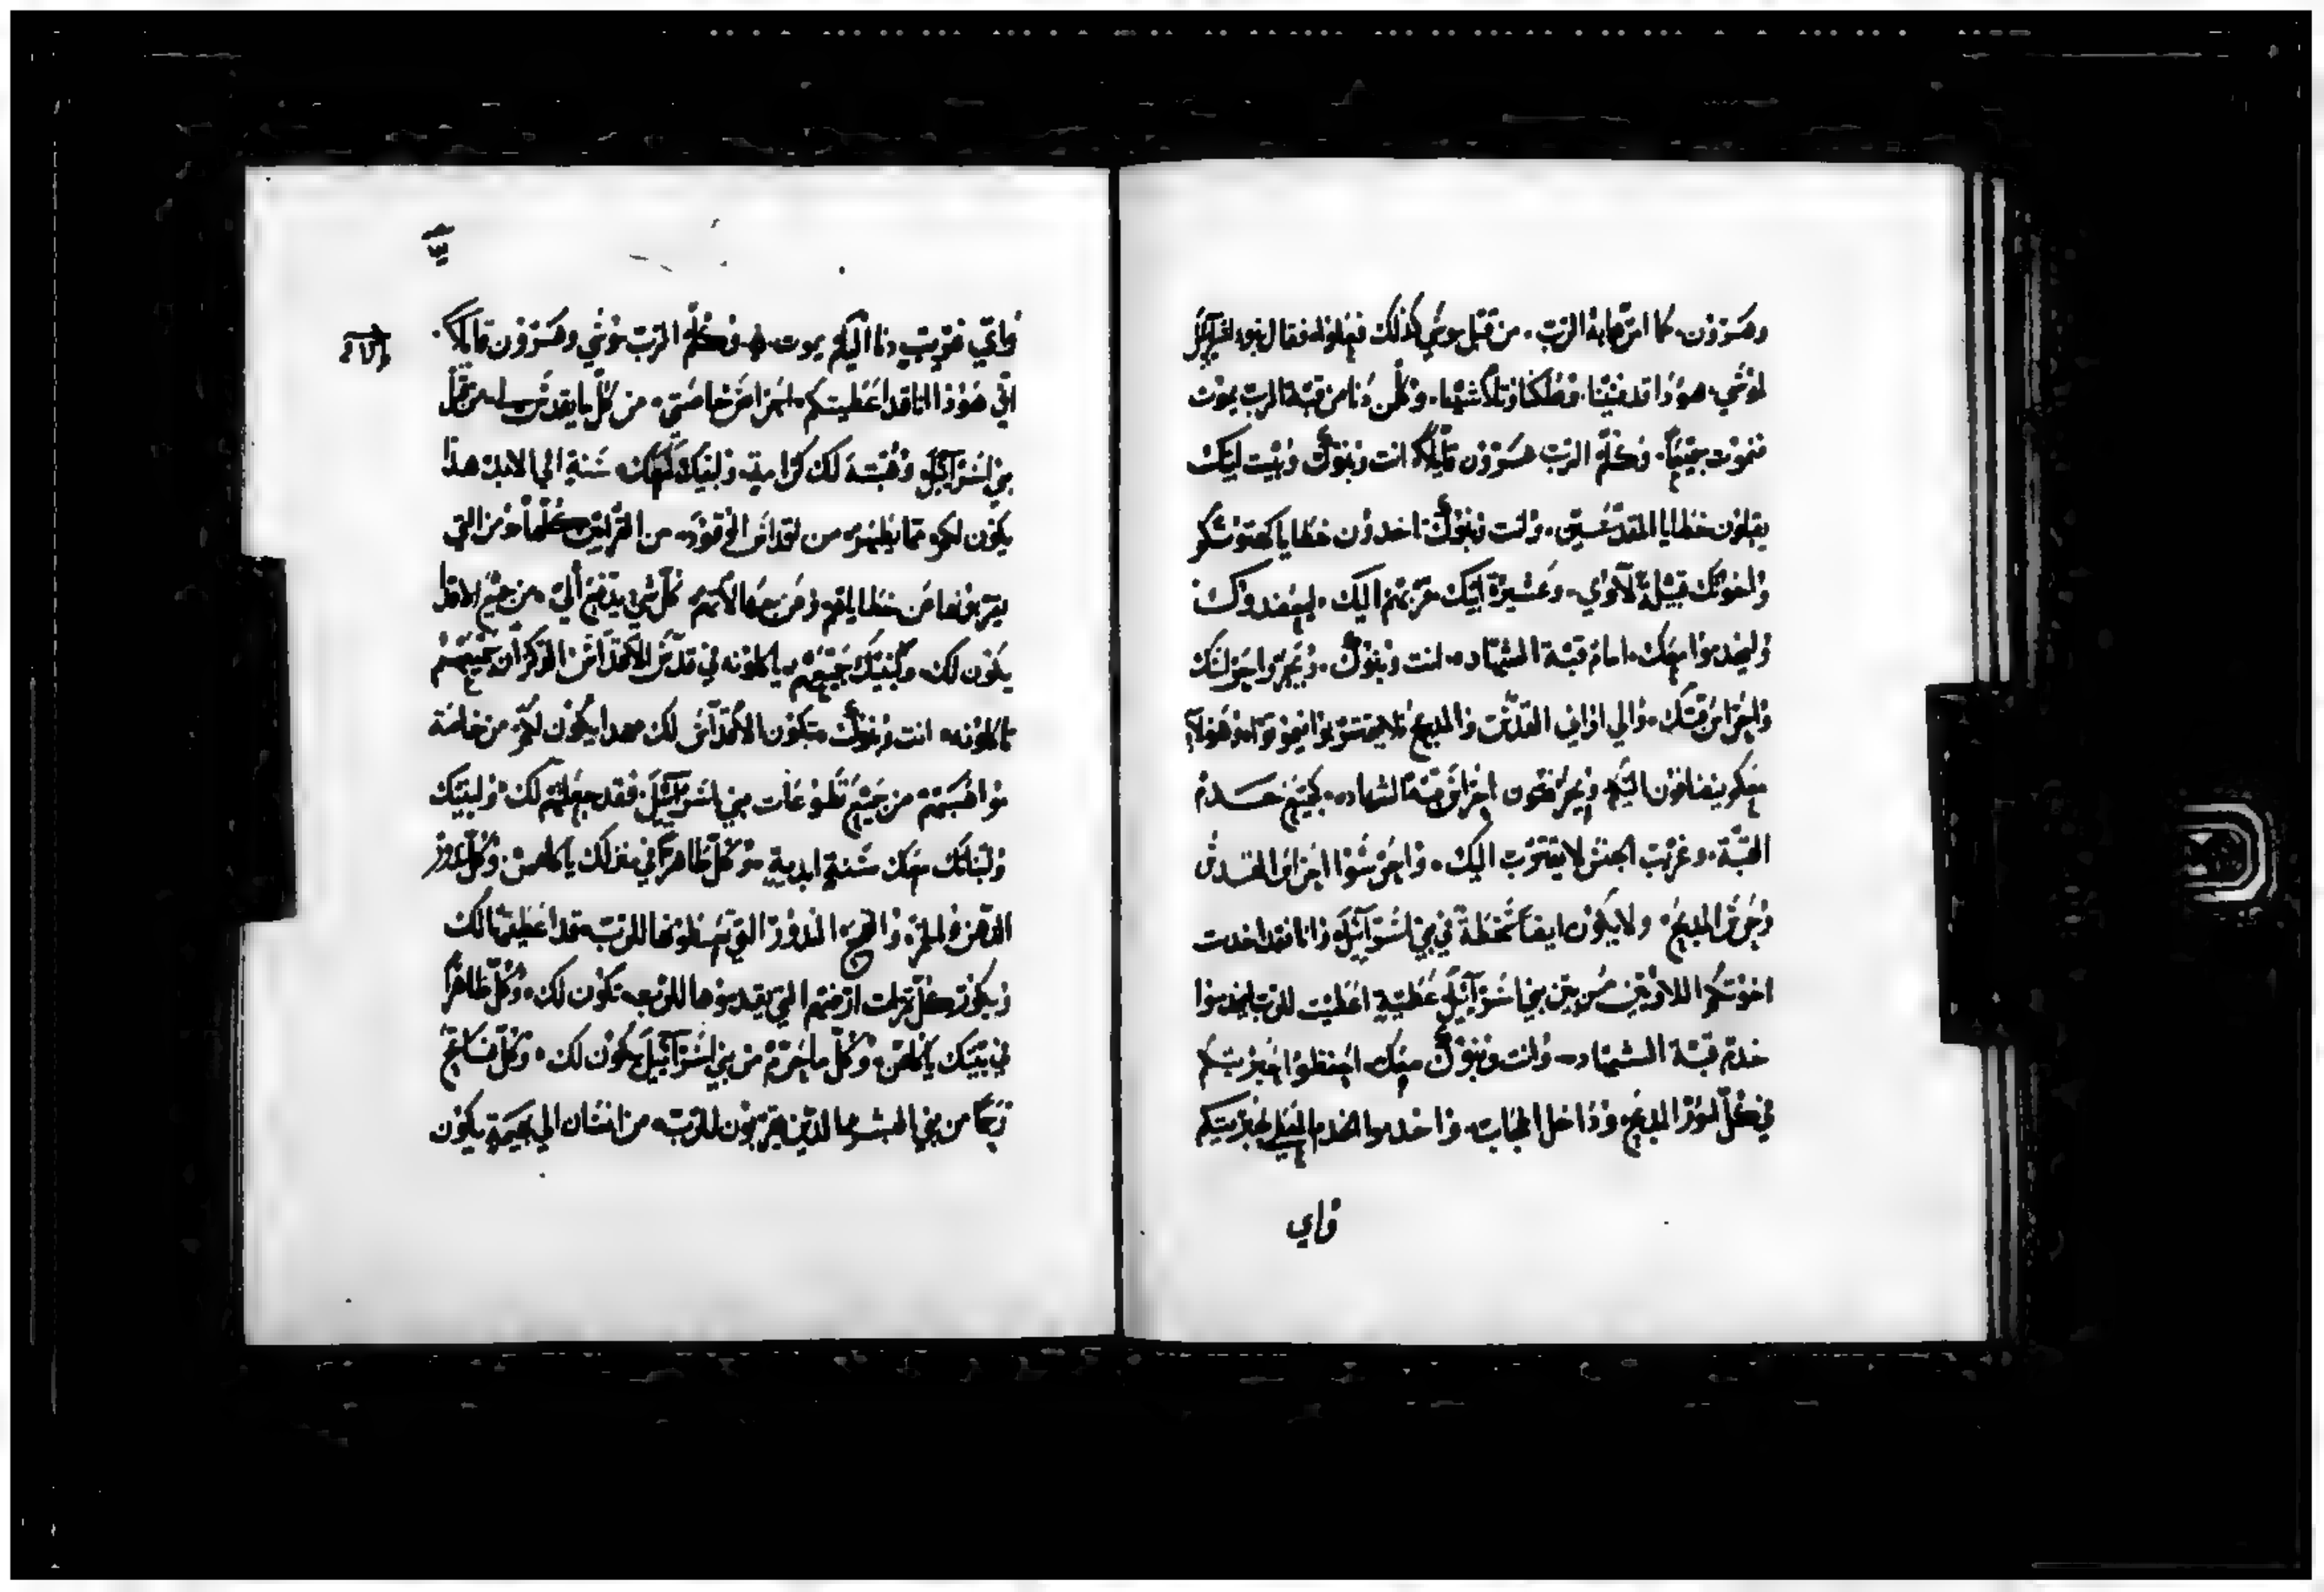 وهرون كما امر هابه الرب من قبل موسي كذلك فعلوا فقال بنوا اسراييل
لموسي هوذا قد فنينا وهلكنا وتلاشينا وكلمن دنا من قبة الرب يموت
فنموت جميعاً وكلم الرب هرون قايلاً انت وبنوك وبيت ابيك
يقبلون خطايا المقدسين وانت وبنوك تاخدون خطايا كهنوتكم
واخوتك قبيلة لاوي وعشيرة ابيك قربهم اليك ليعضدوك
وليخدموا معك امام قبة الشهاده انت وبنوك ويحرسوا حرسك
وحراس قبتك والي اواني القدس والمدبح لا يقتربوا فيموتوا هولاي
معكم ينضافون اليك ويحرسون احراس قبة الشهاده بجميع خدم
القبة وغريب الجنس لا يقترب اليك واحرسوا احراس القدس
وحرس المدبح ولا يكون ايضاً سخطة في بني اسراييل وانا فقد اخدت
اخوتكم اللاويين من بين بني اسراييل عطية اعطيت للرب ليخدموا
خدم قبة الشهاده وانت وبنوك معك احفظوا حبريتكم
في كل امور المدبح وداخل الحجاب واخدموا الخدم لحبريتكم
واي
واي غريب دنا اليكم يموت وكلم الرب موسي وهرون قايلاً
اني هوذا انا قد اعطيتكم احراس خاصتي من كل ما يقدس لي من قبل
بني اسراييل وهبته لك كرامة ولبنيك بعدك سنة الي الابد هذا
يكون لكم مما يطهر من القداس الوقود من القرابين كلها ومن التي
يقربونها من خطاياهم ومن جهالاتهم كل شي يدفع الي من جميع الاقداس
يكون لك ولبنيك جميعهم ياكلونه في قدس الاقداس الدكران جميعهم
تاكلونه انت وبنوك يكون الاقداس لك هدا يكون لكم من خاصة
مواهبهم من جميع تطوعات بني اسراييل فقد جعلتهم لك ولبنيك
ولبناتك معك سنة ابدية وكل طاهراً في منزلك ياكلهن وكل بدوز
الدهن والخمر والقمح الندور التي يعطونها للرب قد اعطيتها لك
ويكون كل غلات ارضهم التي يقدموها للرب تكون لك وكل طاهراً
في بيتك ياكلهن وكل ما يحرم من بني اسراييل يكون لك وكل فاتح
رحماً من بني البشر مما الدين يقربون للرب من انسان الي بهيمة يكون